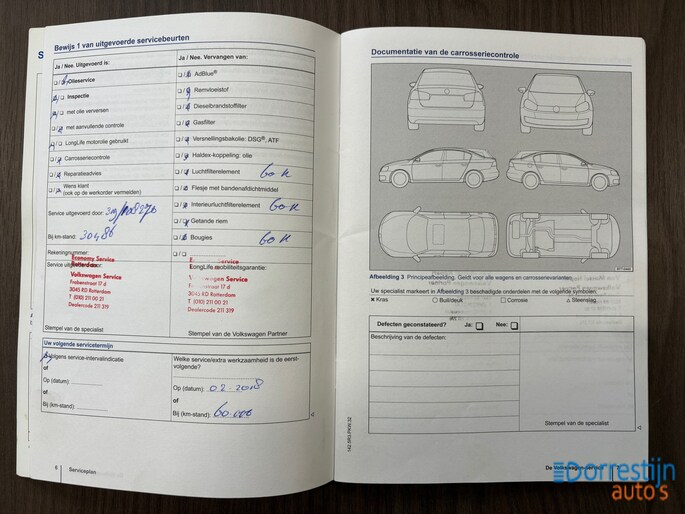 Bewijs 1 van uitgevoerde servicebeurten
Ja / Nee. Uitgevoerd is:
Olieservice
Inspectie
met olie verversen
met aanvullende controle
LongLife motorolie gebruikt
Carrosseriecontrole
Reparatieadvies
Wens klant
(ook op de werkorder vermelden)
Service uitgevoerd door:
Bij km-stand: 30486
Rekeningnummer:
Service
Economy Service
Rotterdam
Volkswagen Service
Frobenstraat 17 d
3045 RD Rotterdam
T (010) 211 00 21
Dealercode 211 319
Stempel van de specialist
Ja / Nee. Vervangen van:
AdBlue®
Remvloeistof
Dieselbrandstoffilter
Gasfilter
Versnellingsbakolie: DSG®, ATF
Haldex-koppeling: olie
Luchtfilterelement 60 K
Flesje met bandenafdichtmiddel
Interieurluchtfilterelement 60 K
Getande riem
Bougies 60 K
LongLife mobiliteitsgarantie:
Service
Service
17 d
3045 RD Rotterdam
T (010) 211 00 21
Dealercode 211 319
Stempel van de Volkswagen Partner
Uw volgende servicetermijn
Volgens service-intervalindicatie
of
Op (datum):
of
Bij (km-stand):
Welke service/extra werkzaamheid is de eerst-
volgende?
Op (datum): 02-2018
of
Bij (km-stand): 60.000
6 Serviceplan
Documentatie van de carrosseriecontrole
Afbeelding 3 Principeafbeelding. Geldt voor alle wagens en carrosserievarianten.
Uw specialist markeert in Afbeelding 3 beschadigde onderdelen met de volgende symbolen:
Kras Buil/deuk Corrosie Steenslag
Defecten geconstateerd? Ja: Nee:
Beschrijving van de defecten:
Stempel van de specialist
Dorrestijn
auto's